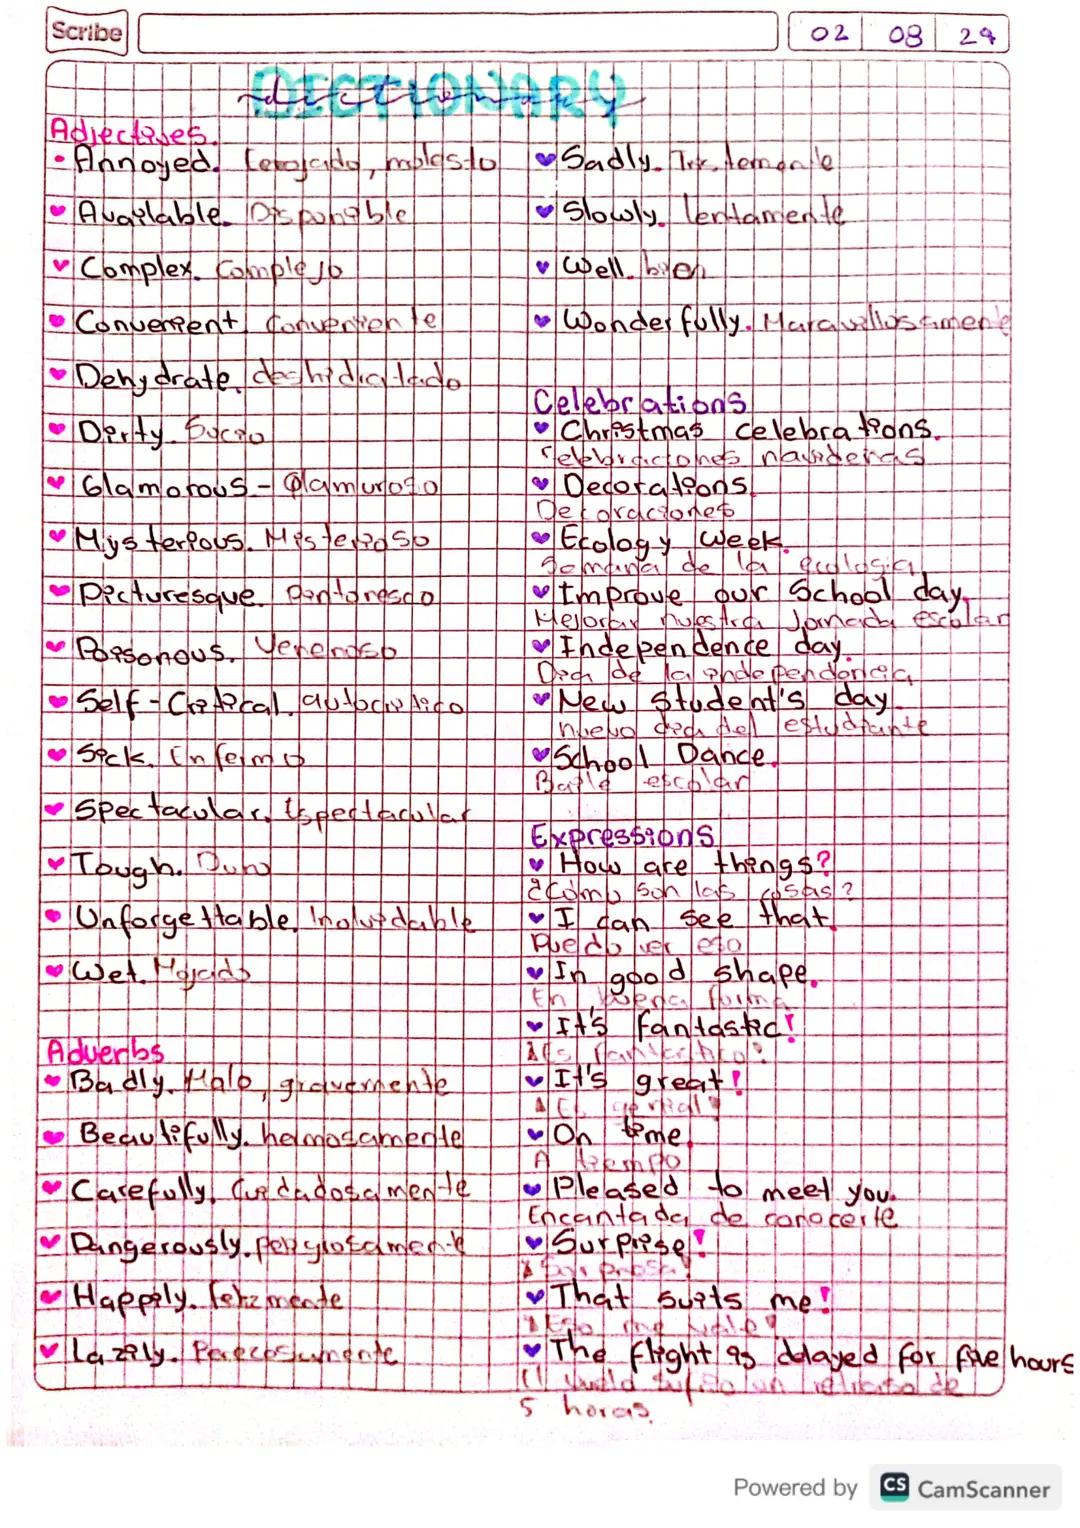 Scribe
02 08 24
DICTIONARY
dictionary
Adjectives.
Annoyed. Enojado, molesto
Available. Disponible
Complex. Complejo
Convenient. Conveniente
Dehydrate. deshidratado
Dirty. Sucio
Glamorous - Glamuroso
Miysterious. Misterioso
Picturesque. Pintoresco
Poisonous. Venenoso
Self-Critical. autocritico
Sick. Enfermo
Spectacular. Espectacular
Tough. Duro
Unforgettable. Inolvidable
Wet. Mojado
Adverbs
Badly. Malo, gravemente
Beautifully. hermosamente
Carefully. Cuidadosamente
Dangerously. peligrosamente
Happily. felizmente
Lazily. Perezosamente
Sadly. Tristemente
Slowly. lentamente
Well. bien
Wonderfully. Maravillosamente
Celebrations
Christmas celebrations.
Celebraciones navideñas
Decorations.
Decoraciones
Ecology week.
Semana de la ecologia
Improve our School day.
Mejorar nuestra Jornada escolar
Independence day.
Dia de la independencia
New Student's day.
nuevo dia del estudiante
School Dance.
Baile escolar
Expressions
How are things?
¿Cómo son las cosas?
I can see that.
Puedo ver eso
In good shape.
En buena forma
It's fantastic!
¡Es fantastico!
It's great!
¡Es genial!
On time.
A tiempo
Pleased to meet you.
Encantada de conocerte
Surprise!
¡Sorpresa!
That suits me!
¡Eso me vale!
The flight is delayed for five hours
El vuelo sufrio un retraso de
5 horas.
Powered by CS CamScanner